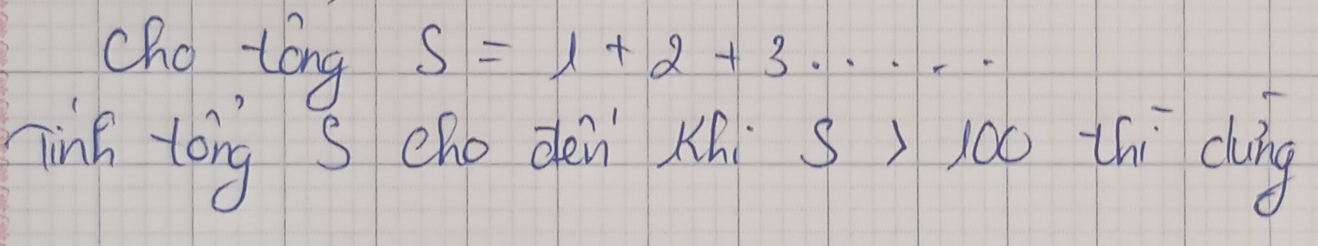 Cho tổng S = 1 + 2 + 3......
Tính tổng S cho đến khi S > 100 thì dừng